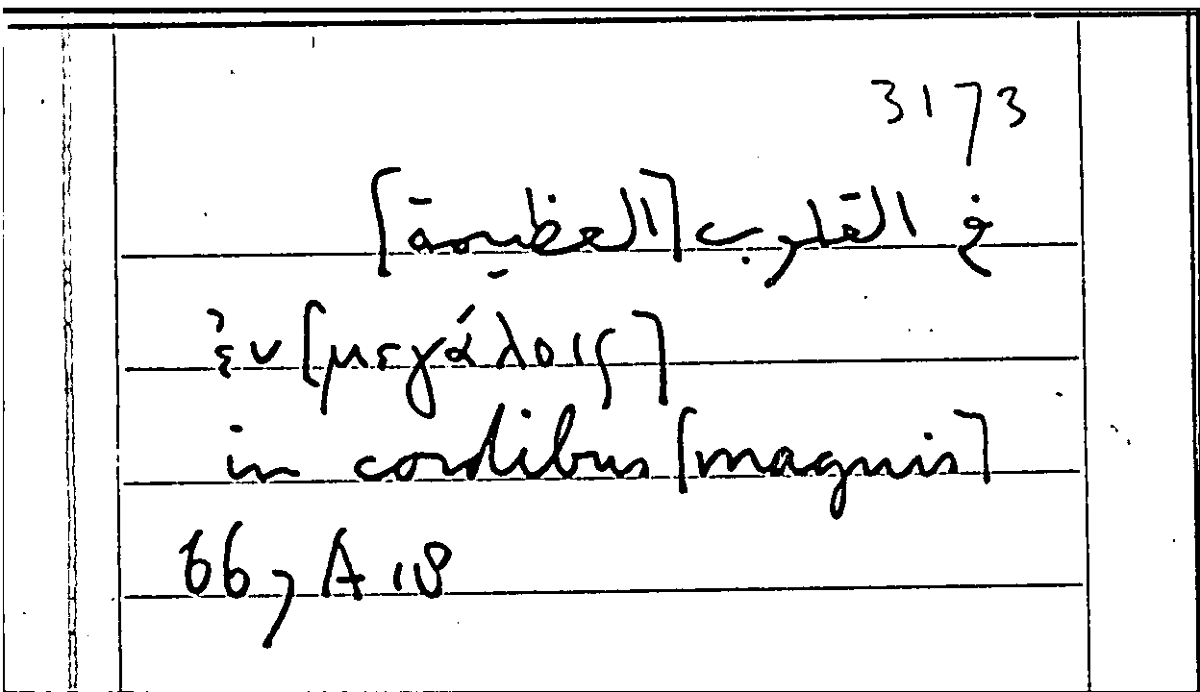 3173
في القلوب [العظيمة]
ἐν [μεγάλοις]
in cordibus [magnis]
66, A 18